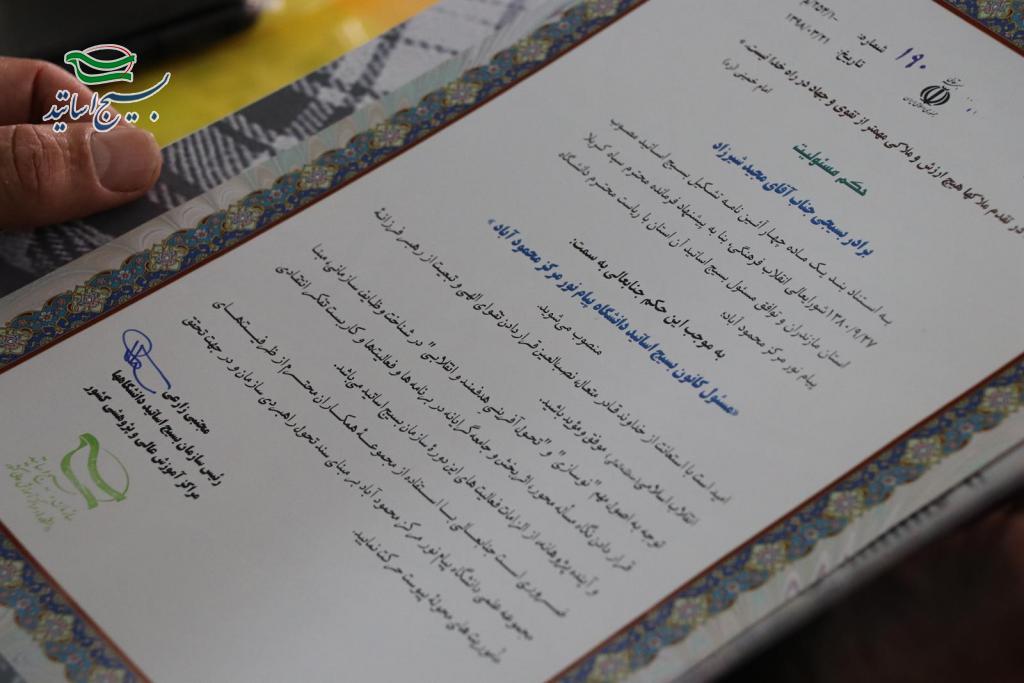 بسیج اساتید
۱۹۰
شماره:
۱۳۹۸/۰۳/۲۱
تاریخ
در تقدم ملاکها هیچ ارزش و ملاکی مهمتر از تقوی و جهاد در راه خدا نیست.
امام خمینی (ره)
حکم مسئولیت
برادر بسیجی جناب آقای مجید شیرزاد
به استناد بند یک ماده چهار آئین نامه تشکیل بسیج اساتید مصوب
۱۳۸۰/۹/۲۷ شورایعالی انقلاب فرهنگی، بنا به پیشنهاد فرمانده محترم سپاه کربلا
استان مازندران و توافق مسئول بسیج اساتید آن استان با ریاست محترم دانشگاه
پیام نور مرکز محمود آباد:
به موجب این حکم جنابعالی به سمت:
«مسئول کانون بسیج اساتید دانشگاه پیام نور مرکز محمود آباد»
منصوب می‌شوید.
امید است با استعانت از خداوند قادر متعال، نصب‌العین قرار دادن تقوای الهی و تبعیت از رهبر فرزانهٔ
انقلاب اسلامی موفق و مؤید باشید.
توجه به اصول مهم "نوسازی" و "تحول آفرینی هدفمند و انقلابی" در شناخت وظایف سازمانی مبنا
قرار دادن نگاه مسأله محور، اثربخش و جامعه گرایانه در برنامه ها و فعالیتها و کاربست تفکر انتقادی
و آینده پژوهانه، از الزامات فعالیت های این دورهٔ سازمان بسیج اساتید می‌باشد.
ضروری است جنابعالی با استفاده از مجموعهٔ همکاران محترم از ظرفیتهای
مجموعه علمی دانشگاه پیام نور مرکز محمود آباد بر مبنای سند تحول راهبردی سازمان و در جهت تحقق
مأموریت های محوله پیوست حرکت نمایید.
مجتبی زارعی
رئیس سازمان بسیج اساتید دانشگاهها
مراکز آموزش عالی و پژوهشی کشور